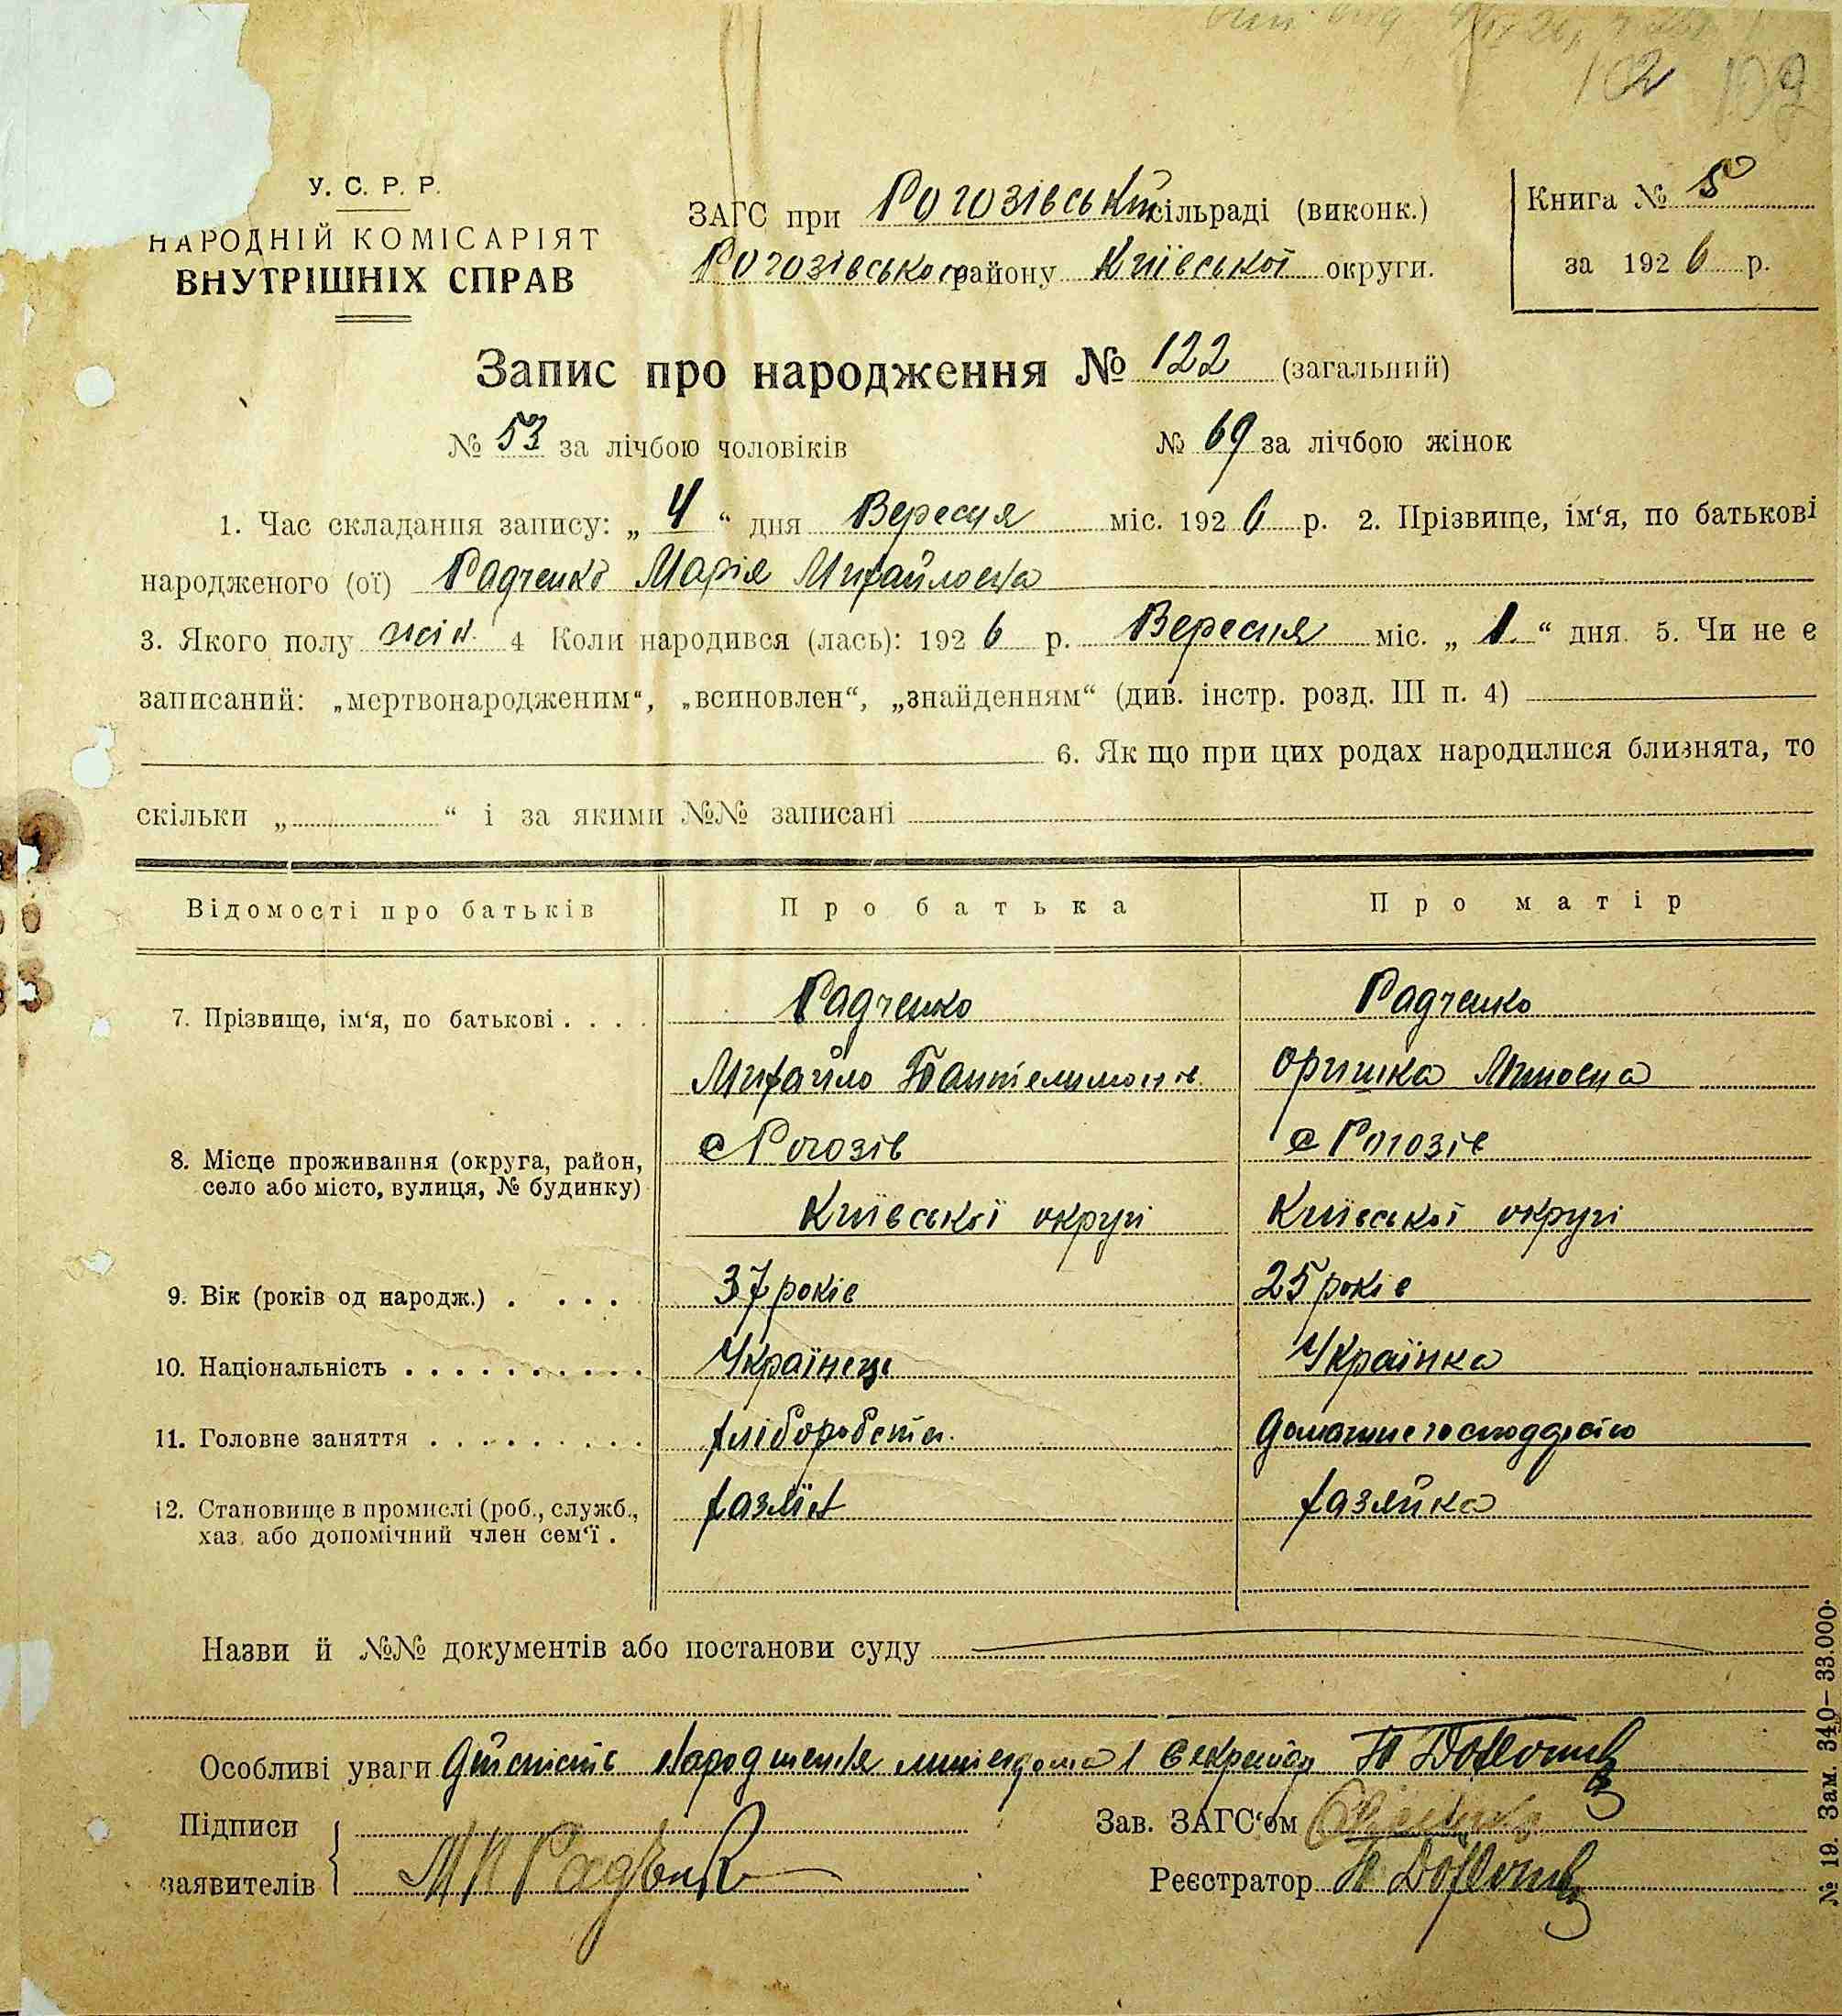 102 102
У. С. Р. Р.
НАРОДНІЙ КОМІСАРІЯТ
ВНУТРІШНІХ СПРАВ
ЗАГС при Рогозівській сільраді (виконк.)
Рогозівського району Київської округи.
Книга № 5
за 1926 р.
Запис про народження № 122 (загальний)
№ 53 за лічбою чоловіків № 69 за лічбою жінок
1. Час складання запису: „ 4 “ дня Вересня міс. 1926 р. 2. Прізвище, ім‘я, по батькові
народженого (ої) Радченко Марія Михайловна
3. Якого полу жін. 4 Коли народився (лась): 1926 р. Вересня міс. „ 1. “ дня. 5. Чи не є
записаний: „мертвонародженим“, „всиновлен“, „знайденням“ (див. інстр. розд. III п. 4)
6. Як що при цих родах народилися близнята, то
скільки „ “ і за якими №№ записані
Відомості про батьків Про батька Про матір
7. Прізвище, ім‘я, по батькові . . . . Радченко Радченко
Михайло Пантелимонів Оришка Миновна
8. Місце проживання (округа, район, с Рогозів с Рогозів
село або місто, вулиця, № будинку)
Київської округи Київської округи
9. Вік (років од народж.) . . . . 37 років 25 років
10. Національність . . . . . . . . . . Українець Українка
11. Головне заняття . . . . . . . . . хліборобств. Домашнє господарство
12. Становище в промислі (роб., служб., хазяїн хазяйка
хаз. або допомічний член сем‘ї .
Назви й №№ документів або постанови суду
Особливі уваги Дійсність народження Секретар
Підписи Зав. ЗАГС‘ом
заявителів М П Радченко Реєстратор
№ 19. Зам. 340—33.000.